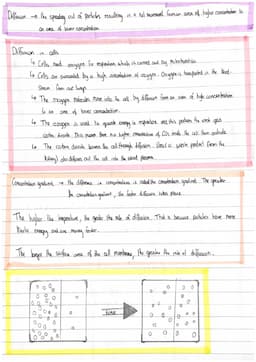 Diffusion → the spreading out of particles resulting in a net movement from an area of higher concentration to
an area of lower concentration
Diffusion in cells
↳ Cells need oxygen for respiration which is carried out by mitochondria
↳ Cells are surrounded by a high concentration of oxygen. Oxygen is transported in the blood
stream from our lungs
↳ The oxygen molecules move into the cell by diffusion from an area of high concentration
to an area of lower concentration.
↳ The oxygen is used to generate energy in respiration and this produces the waste gas
carbon dioxide. This means there is a higher concentration of CO2 inside the cell than outside
↳ The carbon dioxide leaves the cell through diffusion. Urea (a waste product from the
kidney) also diffuses out the cell into the blood plasma.
Concentration gradient → the difference in concentrations is called the concentration gradient. The greater
the concentration gradient, the faster diffusion takes place.
The higher the temperature, the greater the rate of diffusion. That is because particles have more
kinetic energy and are moving faster.
The larger the surface area of the cell membrane, the greater the rate of diffusion.